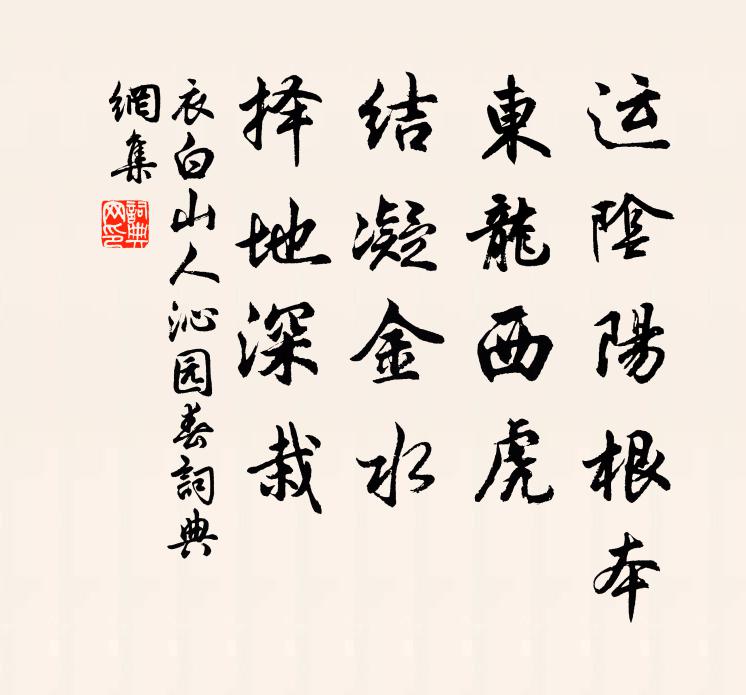 运陰陽根本
東龍西虎
结凝金水
择地深栽
衣白山人沁园春詞典
網集
詞典
网印